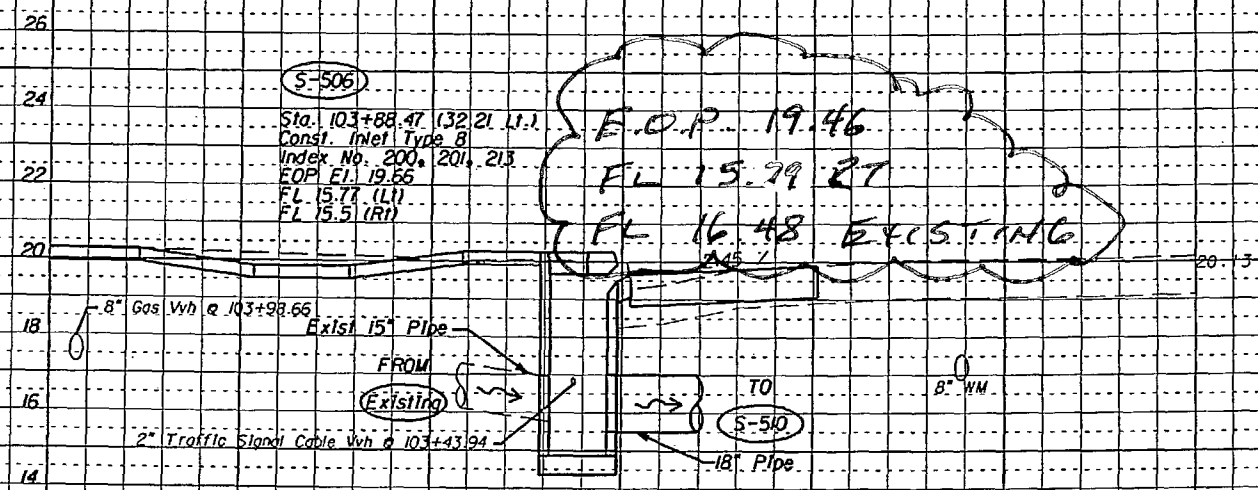 26
24
22
20
18
16
14
S-506
Sta. 103+88.47 (32.21 Lt.)
Const. Inlet Type 8
Index No. 200, 201, 213
EOP El. 19.66
FL 15.77 (Lt)
FL 15.5 (Rt)
E.O.P. 19.46
FL 15.99 RT
FL 16.48 EXISTING
20.13
8" Gas Vvh @ 103+98.66
Exist 15" Pipe
FROM
Existing
TO
S-510
8" WM
2" Traffic Signal Cable Vvh @ 103+43.94
18" Pipe